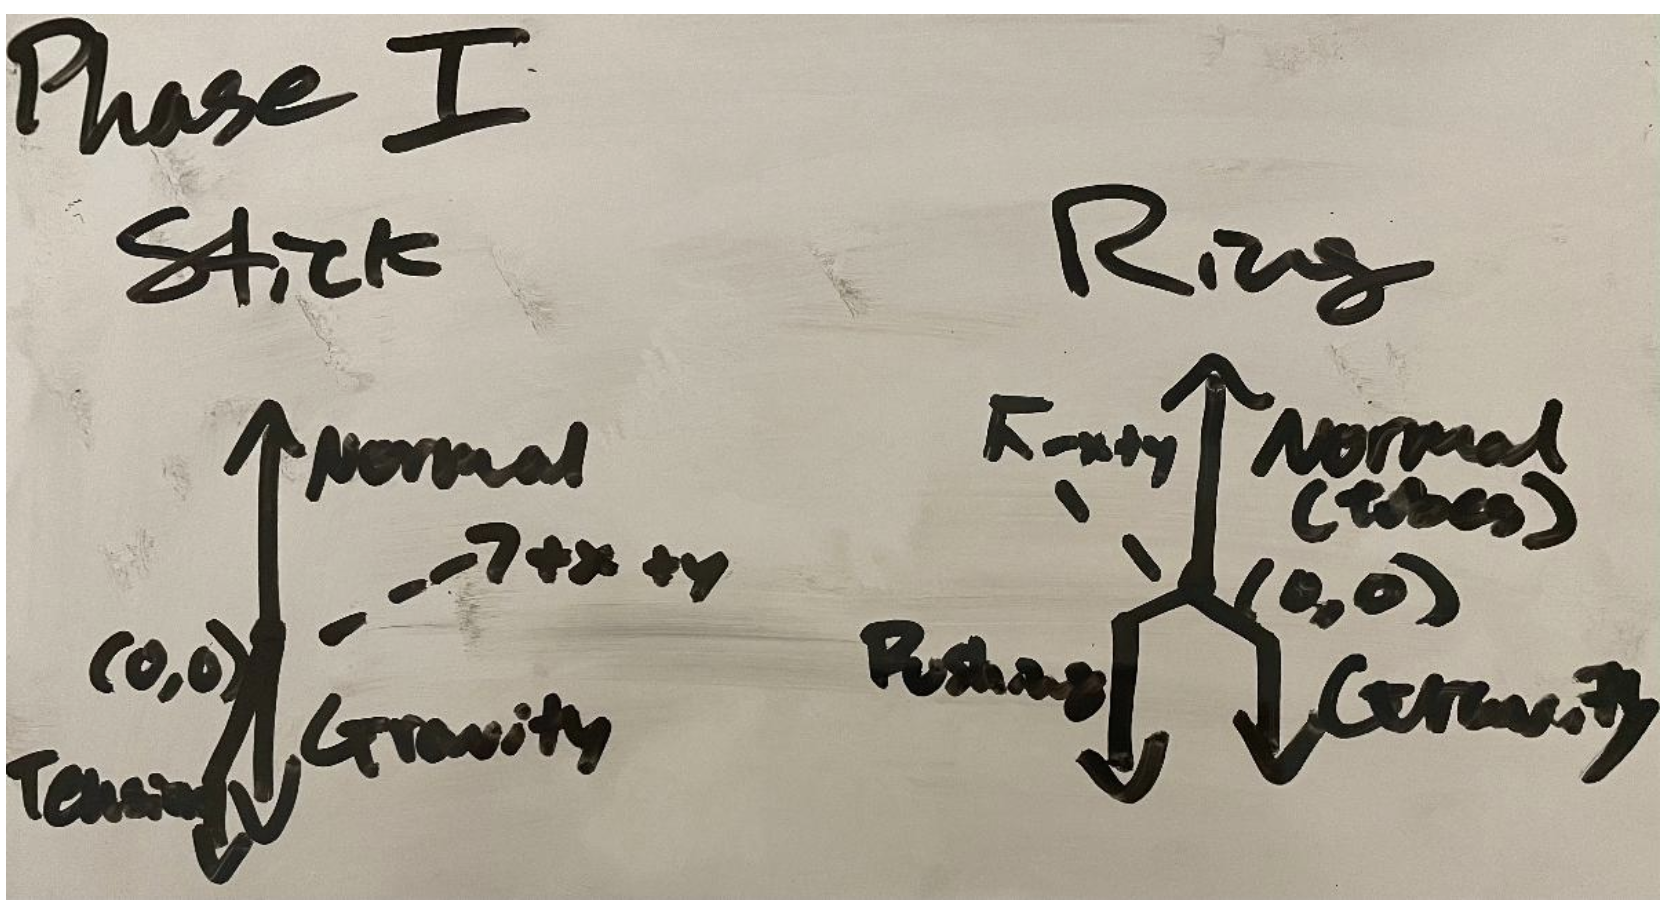 Phase I
Stick
Ring
Normal
+x +y
(0,0)
Gravity
Tension
-x+y
Normal
(tubes)
(0,0)
Pushing
Gravity